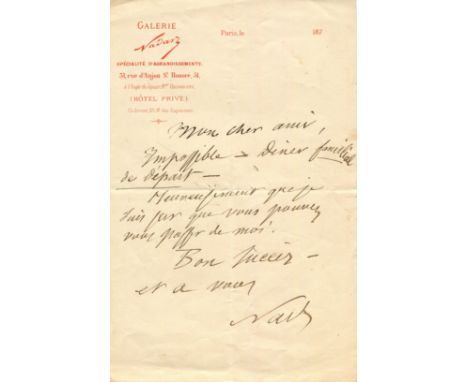 GALERIE
Nadar
Paris, le 187
SPÉCIALITÉ D'AGRANDISSEMENTS
51, rue d'Anjou St Honoré, 51,
(HÔTEL PRIVÉ)
Mon cher ami,
Impossible – Diner familial
de départ –
Heureusement que je
suis sûr que vous pouvez
vous passer de moi.
Bon succès –
et a vous
Nadar